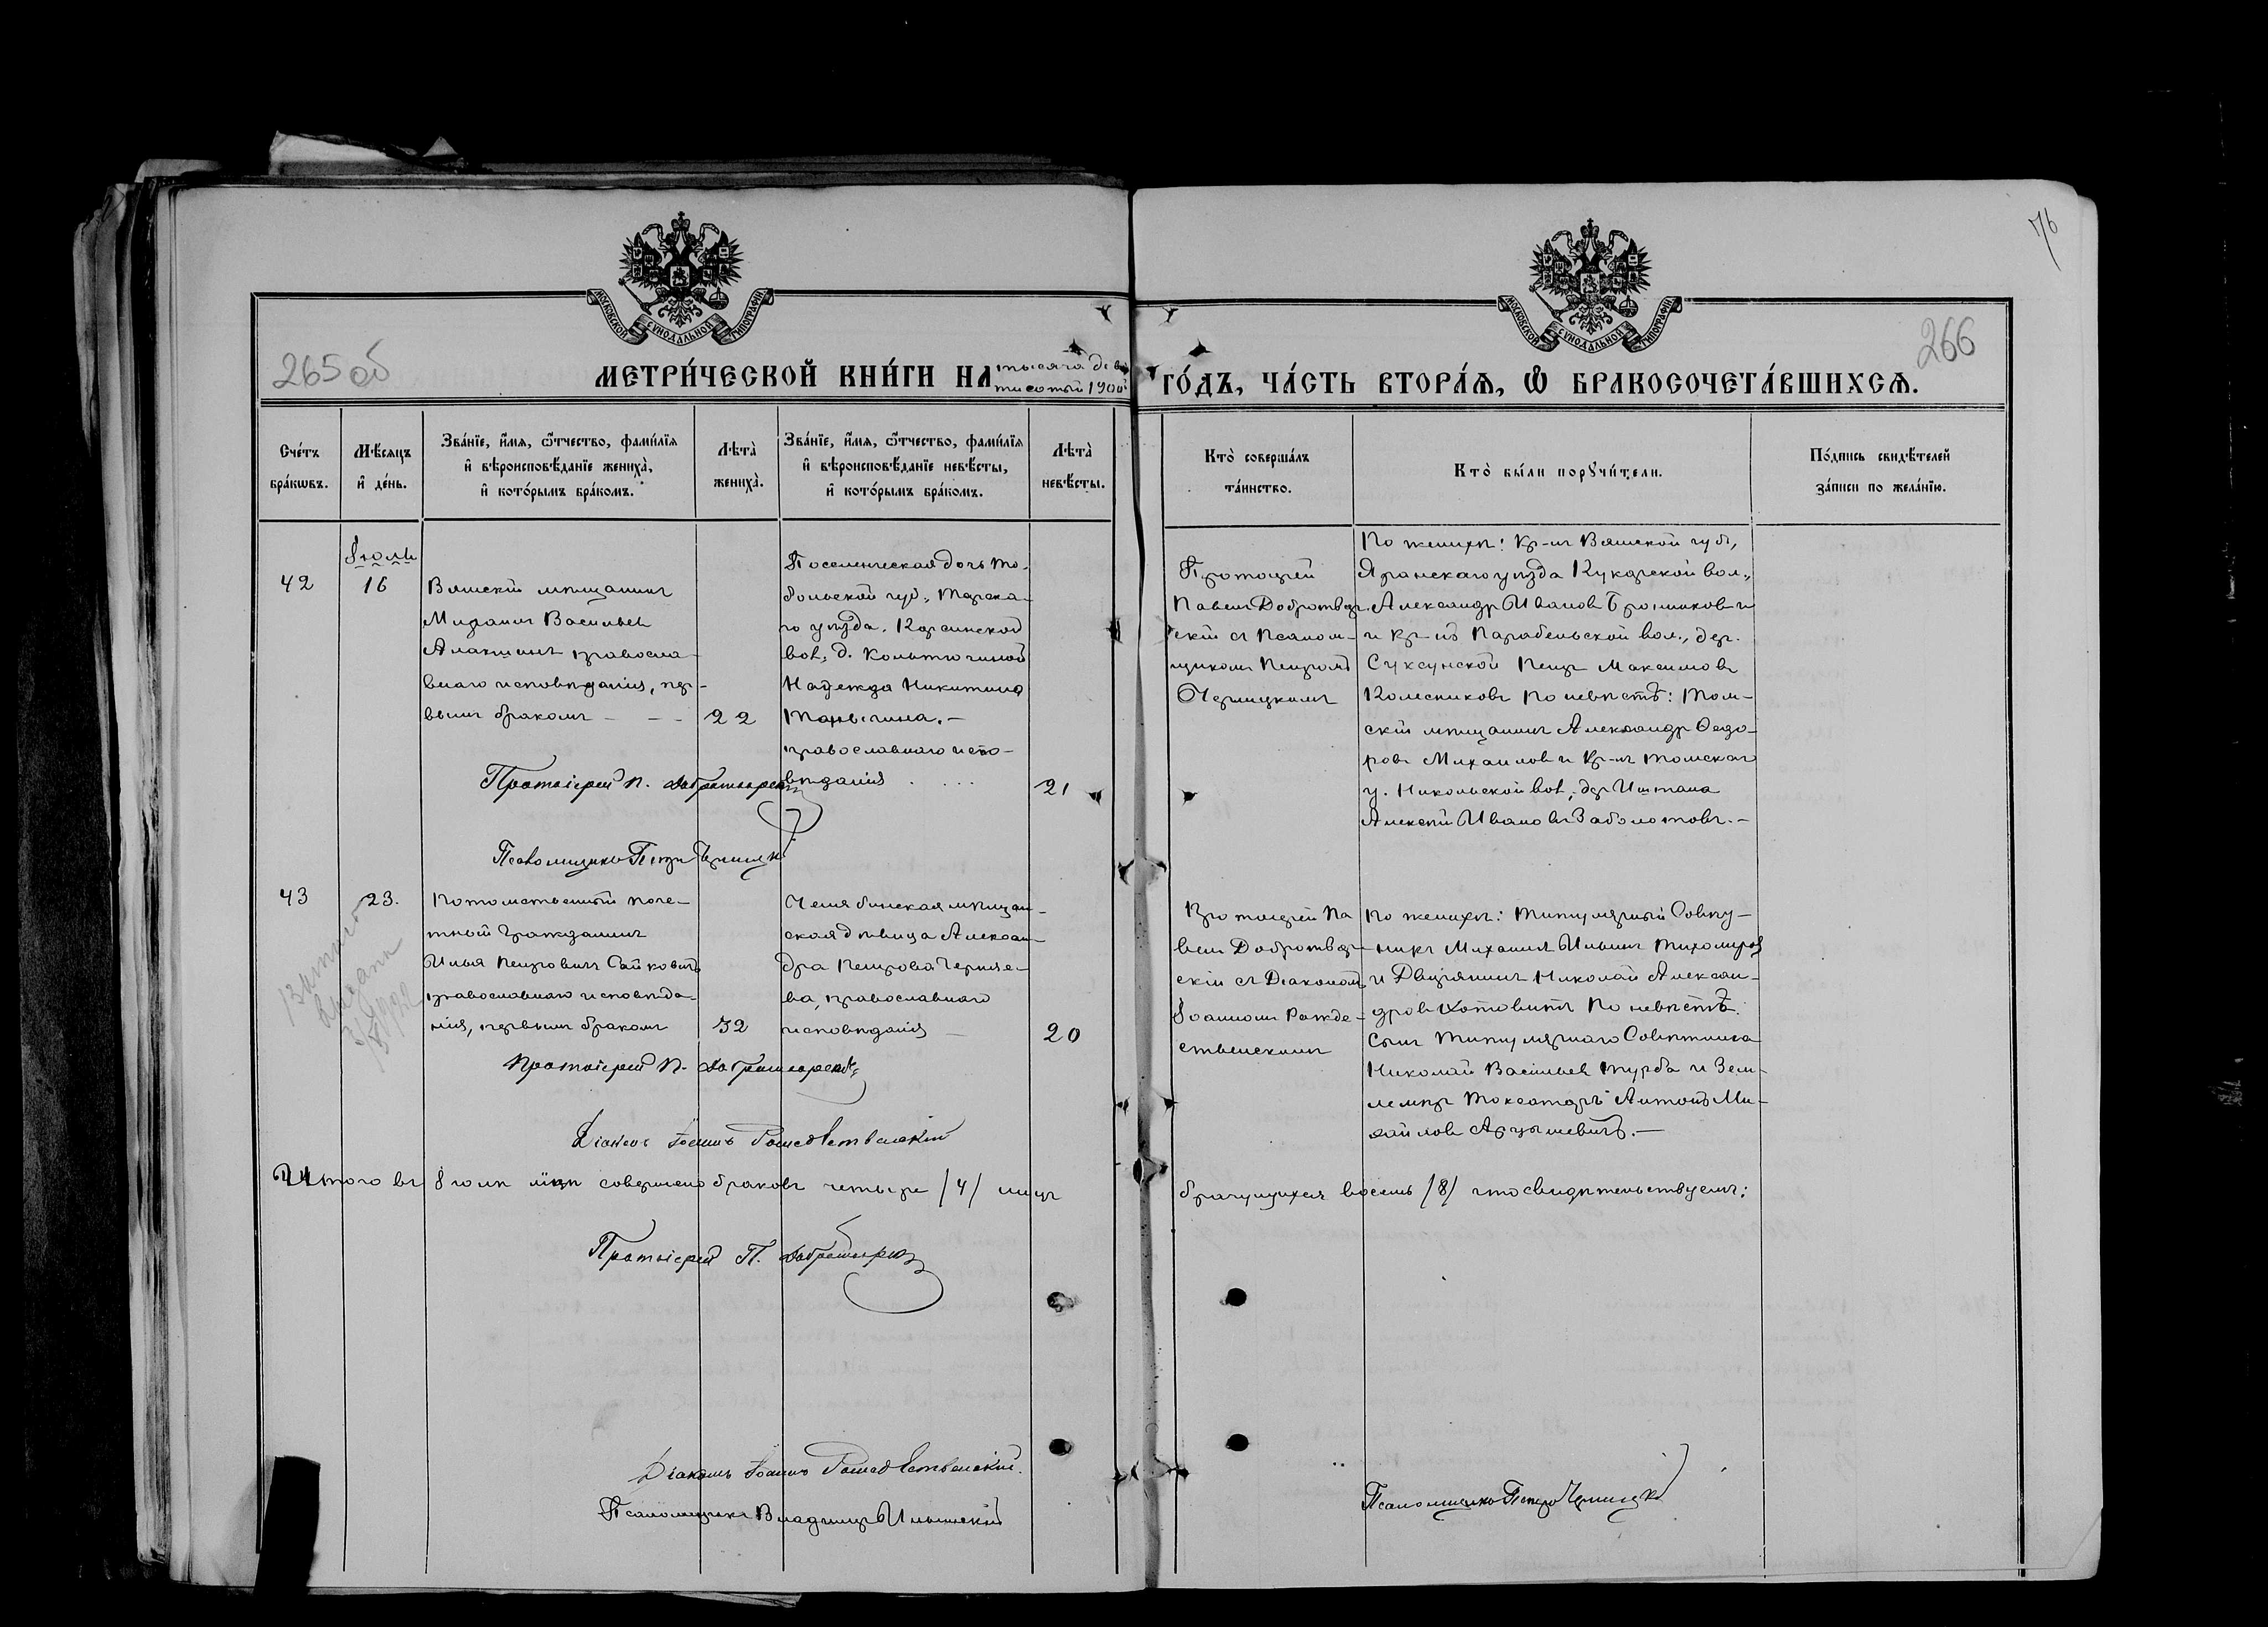 76
265 об
266
МОСКОВСКОЙ СѴНОДАЛЬНОЙ ТИПОГРАФІИ
МОСКОВСКОЙ СѴНОДАЛЬНОЙ ТИПОГРАФІИ
МЕТРИ́ЧЕСКОЙ КНИ́ГИ НА тысяча девя
тисотый 1900й
ГО́ДЪ, ЧА́СТЬ ВТОРА́Ѧ, Ѽ БРАКОСОЧЕТА́ВШИХСѦ.
Сче́тъ
бра́кωвъ.
Мѣ́сяцъ
и҆ де́нь.
Зва́нїе, и҆́мѧ, ѻ҆́тчество, фами́лїѧ
и҆ вѣроисповѣ́данїе жениха̀,
и҆ кото́рымъ бра́комъ.
Лѣта̀
жениха̀.
Зва́нїе, и҆́мѧ, ѻ҆́тчество, фами́лїѧ
и҆ вѣроисповѣ́данїе невѣ́сты,
и҆ кото́рымъ бра́комъ.
Лѣта̀
невѣ́сты.
Кто̀ соверша́лъ
та́инство.
Кто̀ бы́ли порꙋчи́тели.
По́дпись свидѣ́телей
за́писи по жела́нїю.
42
Іюль
16
Вятскій мѣщанинъ
Михаилъ Васильев
Алакшинъ правосла-
внаго исповѣданія, пер-
вымъ бракомъ - - -
22
Поселенческая дочь То-
больской губ., Тарска-
го уѣзда. Карсинской
вол., д. Кольтюгиной
Надежда Никитина
православнаго испо-
вѣданія . ...
21
Протоіерей
Павелъ Добротвор-
скій съ Псалом-
щикомъ Петромъ
Черницкимъ
По женихѣ: Кр-нъ Вятской губ.,
Яранскаго уѣзда Кукарской вол.,
Александръ Ивановъ Бронников и
и Кр-нъ Парабельской вол., дер.
Суксунской Петръ Максимовъ
Колесниковъ По невѣстѣ: Том-
скій мѣщанинъ Александръ Ѳедо-
ровъ Михаилов и Кр-нъ Томскаго
у. Никольской вол., дер Иштана
Алексѣй Ивановъ Заболотовъ. -
Протоіерей П. Добротворскій
Псаломщикъ Петръ Черницкій
43
23.
Потомственный поче-
тный Гражданинъ
Илья Петровичъ Сайковичъ
православнаго исповѣда-
нія, первымъ бракомъ
32
Челябинская мѣщан-
ская дѣвица Алексан-
дра Петрова Черняе-
ва, православнаго
исповѣданія -
20
Протоіерей Па
велъ Добротвор-
скій съ Діакономъ
Іоанномъ Рожде-
ственскимъ
По женихѣ: Титулярный Совѣт-
никъ Михаилъ Ильинъ Тихомировъ
и Дворянинъ Николай Алексан-
дров Хотовитъ По невѣстѣ:
Сынъ Титулярнаго Совѣтника
Николай Васильев Турба и Зем-
лемѣръ Таксаторъ Антонъ Ми-
хайлов Арцышевичъ. -
Протоіерей П. Добротворскій
Діаконъ Іоаннъ Рождественскій
Итого въ Іюлѣ мцѣ совершено браковъ четыре /4/ лицъ
брачущихся восемь /8/ что свидѣтельствуемъ:
Протоіерей П. Добротворскій
Діаконъ Іоаннъ Рождественскій.
Псаломщикъ Владиміръ Ильинскій
Псаломщикъ Петръ Черницкій